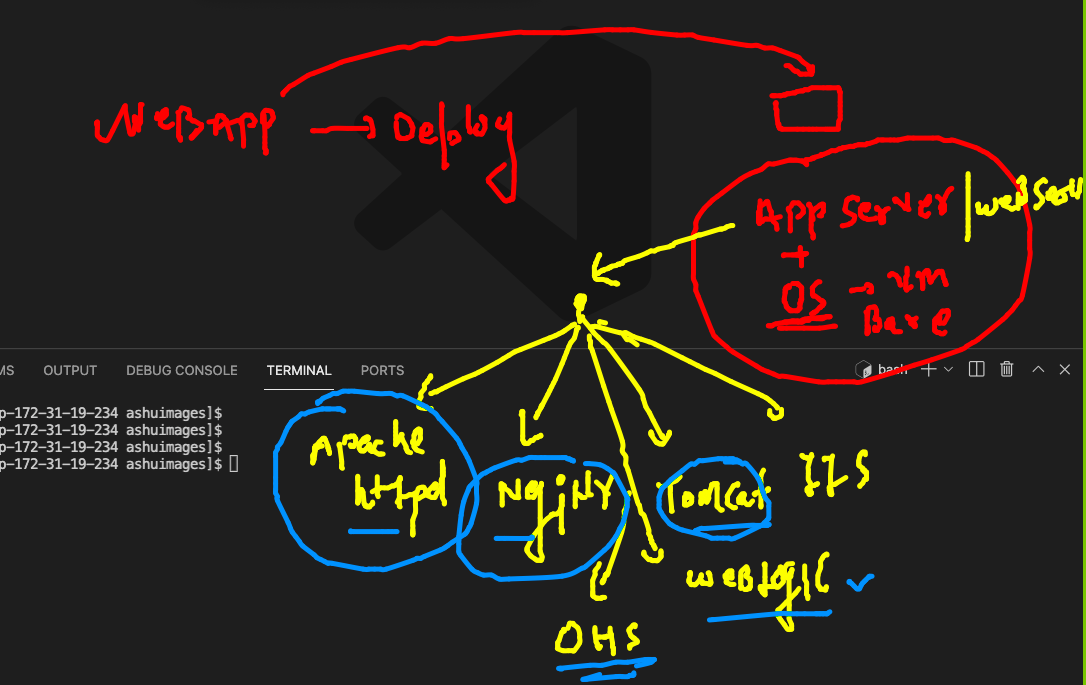 WEBAPP → Deploy
App Server | webServ
+
OS → VM
Bare
MS OUTPUT DEBUG CONSOLE TERMINAL PORTS bash
p-172-31-19-234 ashuimages]$
p-172-31-19-234 ashuimages]$
p-172-31-19-234 ashuimages]$
p-172-31-19-234 ashuimages]$
Apache
httpd
NgiNX
TomCat
IIS
weBLogIC
OHS